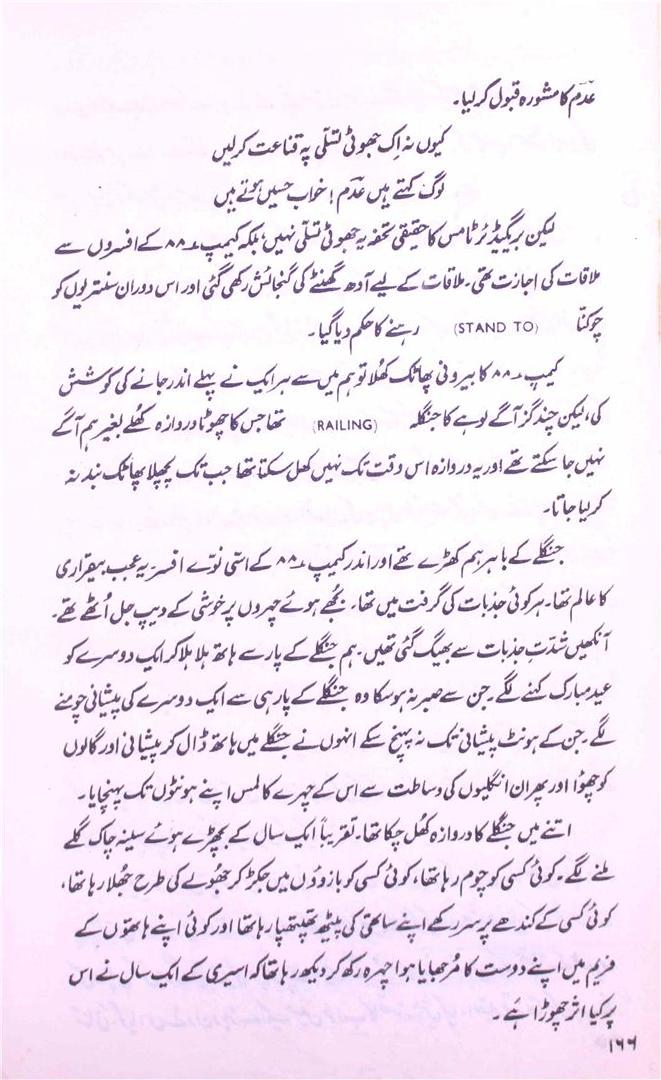 عدم کا مشورہ قبول کر لیا۔
کیوں نہ اِک جھوٹی تسلّی پہ قناعت کر لیں
لوگ کہتے ہیں عدم! خواب حسیں ہوتے ہیں
لیکن بریگیڈئر ٹامس کا حقیقی تحفہ یہ جھوٹی تسلّی نہیں، بلکہ کیمپ ۸۸ کے افسروں سے
ملاقات کی اجازت تھی۔ ملاقات کے لیے آدھ گھنٹے کی گنجائش رکھی گئی اور اس دوران سنتریوں کو
چوکنّا (STAND TO) رہنے کا حکم دیا گیا۔
کیمپ ۸۸ کا بیرونی پھاٹک کُھلا تو ہم میں سے ہر ایک نے پہلے اندر جانے کی کوشش
کی، لیکن چند گز آگے لوہے کا جنگلہ (RAILING) تھا جس کا چھوٹا دروازہ کُھلے بغیر ہم آگے
نہیں جا سکتے تھے اور یہ دروازہ اس وقت تک نہیں کھل سکتا تھا جب تک پچھلا پھاٹک بند نہ
کر لیا جاتا۔
جنگلے کے باہر ہم کھڑے تھے اور اندر کیمپ ۸۸ کے اسّی نوّے افسر۔ یہ عجب بیقراری
کا عالم تھا۔ ہر کوئی جذبات کی گرفت میں تھا۔ بُجھے ہوئے چہروں پر خوشی کے دیپ جل اُٹھے تھے۔
آنکھیں شدّتِ جذبات سے بھیگ گئی تھیں۔ ہم جنگلے کے پار سے ہاتھ ہلا ہلا کر ایک دوسرے کو
عید مبارک کہنے لگے۔ جن سے صبر نہ ہو سکا وہ جنگلے کے پار ہی سے ایک دوسرے کی پیشانی چومنے
لگے۔ جن کے ہونٹ پیشانی تک نہ پہنچ سکے انہوں نے جنگلے میں ہاتھ ڈال کر پیشانی اور گالوں
کو چھوُا اور پھر ان انگلیوں کی وساطت سے اس کے چہرے کا لمس اپنے ہونٹوں تک پہنچایا۔
اتنے میں جنگلے کا دروازہ کھل چکا تھا۔ تقریباً ایک سال کے بچھڑے ہوئے سینہ چاک گلے
ملنے لگے۔ کوئی کسی کو چوم رہا تھا، کوئی کسی کو بازوؤں میں جکڑ کر جھولے کی طرح جُھلا رہا تھا،
کوئی کسی کے کندھے پر سر رکھے اپنے ساتھی کی پیٹھ تھپتھپا رہا تھا اور کوئی اپنے ہاتھوں کے
فریم میں اپنے دوست کا مُرجھایا ہوا چہرہ رکھ کر دیکھ رہا تھا کہ اسیری کے ایک سال نے اس
پر کیا اثر چھوڑا ہے۔
۱۶۶